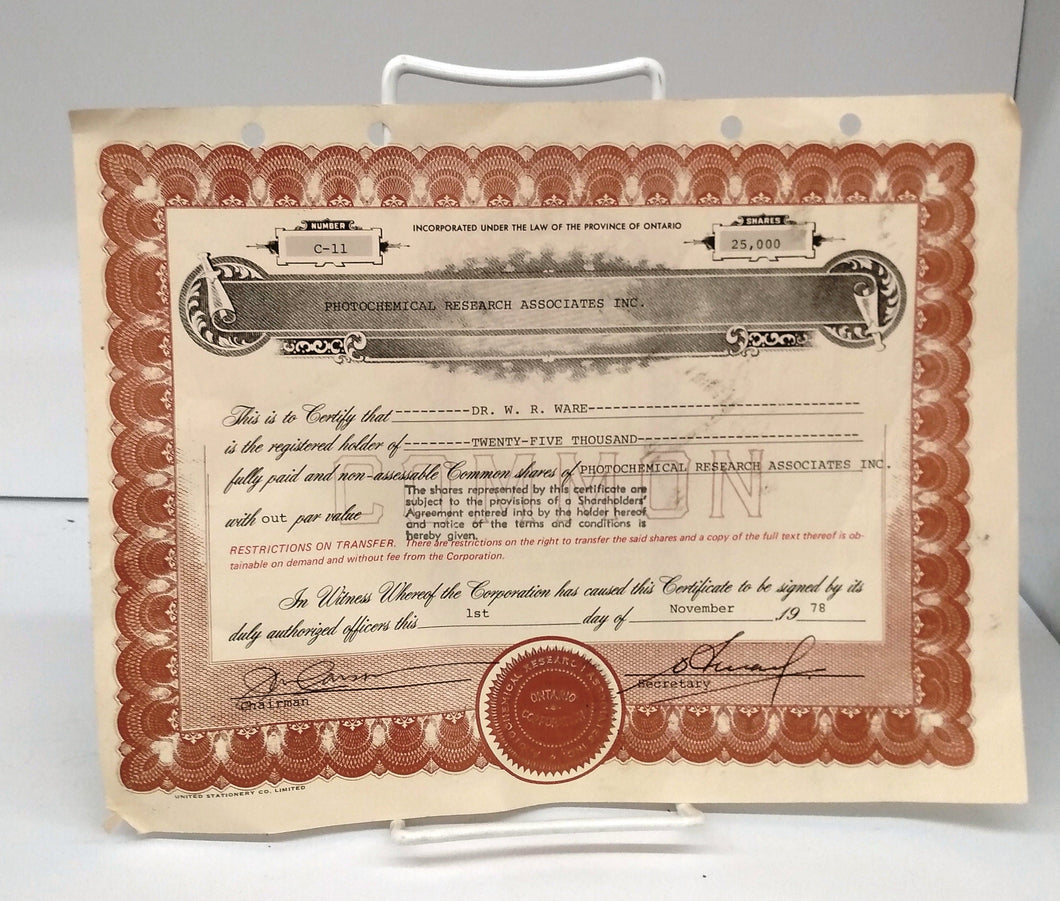 NUMBER
C-11
INCORPORATED UNDER THE LAW OF THE PROVINCE OF ONTARIO
SHARES
25,000
PHOTOCHEMICAL RESEARCH ASSOCIATES INC.
This is to Certify that ---------DR. W. R. WARE---------------------------------
is the registered holder of --------TWENTY-FIVE THOUSAND---------------------------
fully paid and non-assessable Common shares of PHOTOCHEMICAL RESEARCH ASSOCIATES INC.
COMMON
with out par value
The shares represented by this certificate are
subject to the provisions of a Shareholders'
Agreement entered into by the holder hereof
and notice of the terms and conditions is
hereby given.
RESTRICTIONS ON TRANSFER. There are restrictions on the right to transfer the said shares and a copy of the full text thereof is ob-
tainable on demand and without fee from the Corporation.
In Witness Whereof the Corporation has caused this Certificate to be signed by its
duly authorized officers this 1st day of November 19 78
Chairman
Secretary
RESEARCH
ONTARIO
UNITED STATIONERY CO. LIMITED